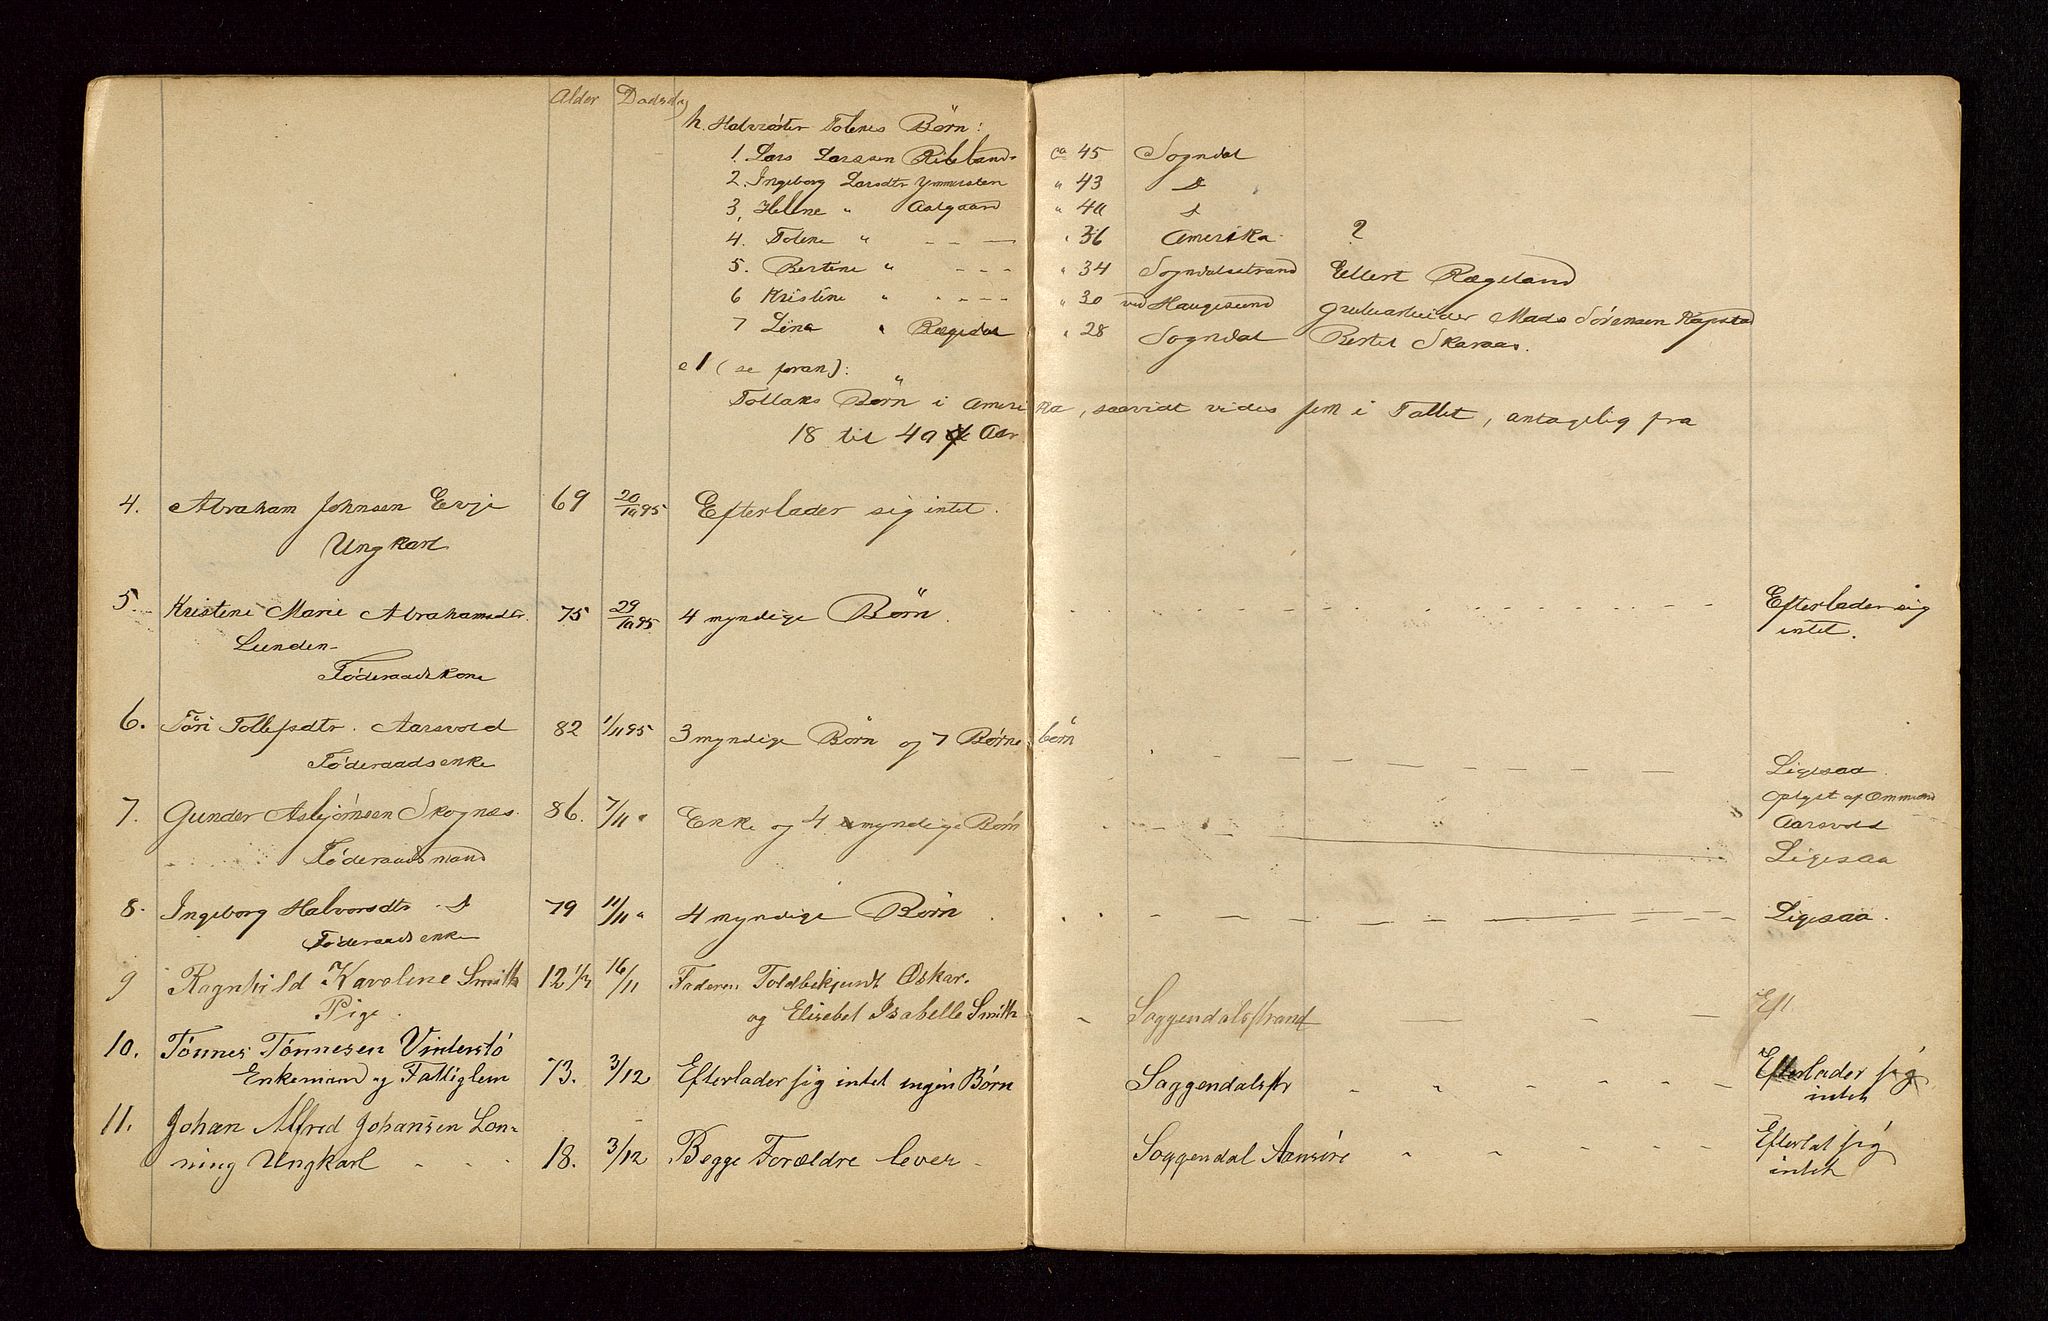 Alder Dødsdag
h. Halvsøster Tolenes Børn:
1. Lars Larssen Ribeland ca 45 Sogndal
2. Ingeborg Larsdtr Ymmersten " 43 d
3, Helene " Aatgaard " 40 d
4. Tolene " - - - " 36 Amerika ?
5. Bertine " - - - " 34 Sogndalsstrand Ellert Rægeland
6 Kristine " - - - - " 30 ved Haugesund Grubearbeider Mads Sørensen Rapstad
7 Lina " Rægedal " 28 Sogndal Bertel Skaraas.
e 1 (se foran):
Tollaks Børn i Amerika, saavidt vides fem i Tallet, antagelig fra
18 til 40 Aar
4. Abraham Johnsen Evje 69 20/10 95 Efterlader sig intet.
Ungkarl
5. Kristine Marie Abrahamsdtr. 75 29/10 95 4 myndige Børn. Efterlader sig
Lunden intet.
Føderaadskone
6. Tøri Tollefsdtr. Aarsvold 82 1/11 95 3 myndige Børn og 7 Børnebørn
Føderaadsenke Ligesaa.
Oplyst af Ommund
Aarsvold
7. Gunder Asbjørnsen Skognæs. 86. 7/11 " Enke og 4 myndige Børn
Føderaadsmand Ligesaa
8. Ingeborg Halvorsdtr d 79 11/11 " 4 myndige Børn. Ligesaa.
Føderaadsenke
9 Ragnhild Karoline Smith 12 1/2 16/11 Faderen Toldbetjent Oskar.
Pige. og Elisebet Isabelle Smith Soggendalsstrand Eft
10. Tønnes Tønnesen Vinterstø
Enkemand og Fattiglem 73. 3/12 Efterlader sig intet ingen Børn Soggendalsstr Efterlader sig
intet
11. Johan Alfred Johansen Lon-
ning Ungkarl 18. 3/12 Begge Forældre lever Soggendal Aansire Efterlat sig
intet